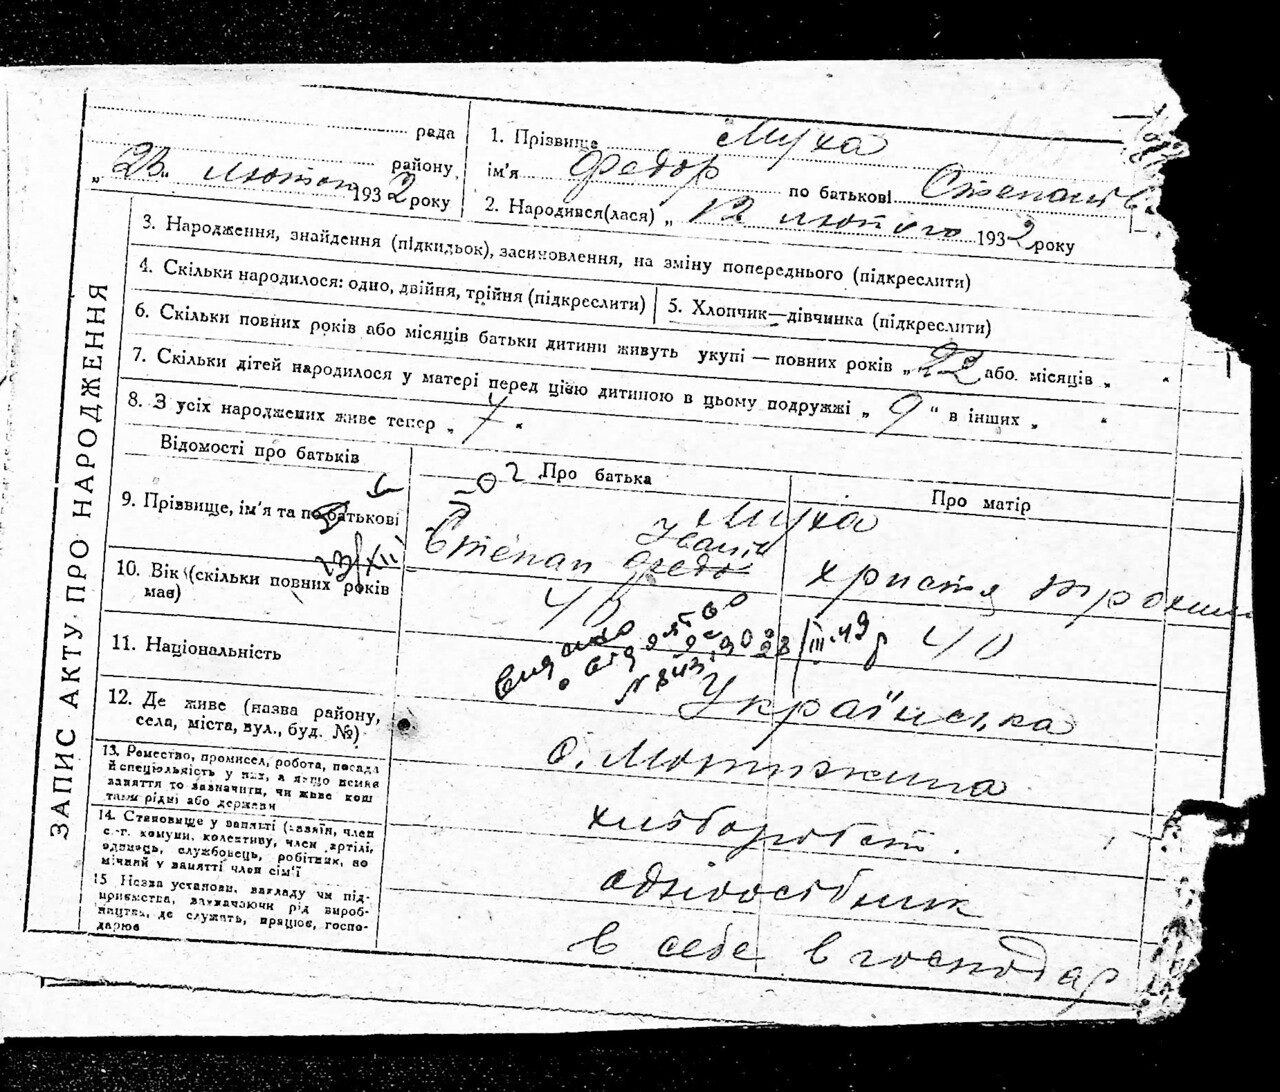 рада
району,
„ 23 “ лютого 1932 року
1. Прізвище Муха
ім'я Федор по батькові Степанов.
2. Народився(лася) „ 12 лютого 1932 року
ЗАПИС АКТУ ПРО НАРОДЖЕННЯ
3. Народження, знайдення (підкидьок), засиновлення, на зміну попереднього (підкреслити)
4. Скільки народилося: одно, двійня, трійня (підкреслити)
5. Хлопчик—дівчинка (підкреслити)
6. Скільки повних років або місяців батьки дитини живуть укупі — повних років „ 22 або місяців „ “
7. Скільки дітей народилося у матері перед цією дитиною в цьому подружжі „ 9 “ в інших „ “
8. З усіх народжених живе тепер „ 7 “
Відомості про батьків
Про батька
Про матір
9. Прізвище, ім'я та по батькові
Муха
Іванів
Степан Федо
Христя
23/XII
10. Вік (скільки повних років має)
40
40
видано
28/III.49 р
11. Національність
Українська
12. Де живе (назва району,
села, міста, вул., буд. №)
с. Мотижина
13. Ремество, промисел, робота, посада
й спеціяльність у них, а якщо нема
заняття то зазначити, чи живе кош
там рідні або держави
хлібороби.
14. Становище у занятті (хазяїн, член
с.-г. комуни, колективу, член артілі,
одинець, службовець, робітник, по
мічний у занятті член сім'ї
одноосібник
15 Назва установи, закладу чи під-
приємства, зазначаючи рід вироб-
ництва, де служать, працює, госпо-
дарює
в себе в господар